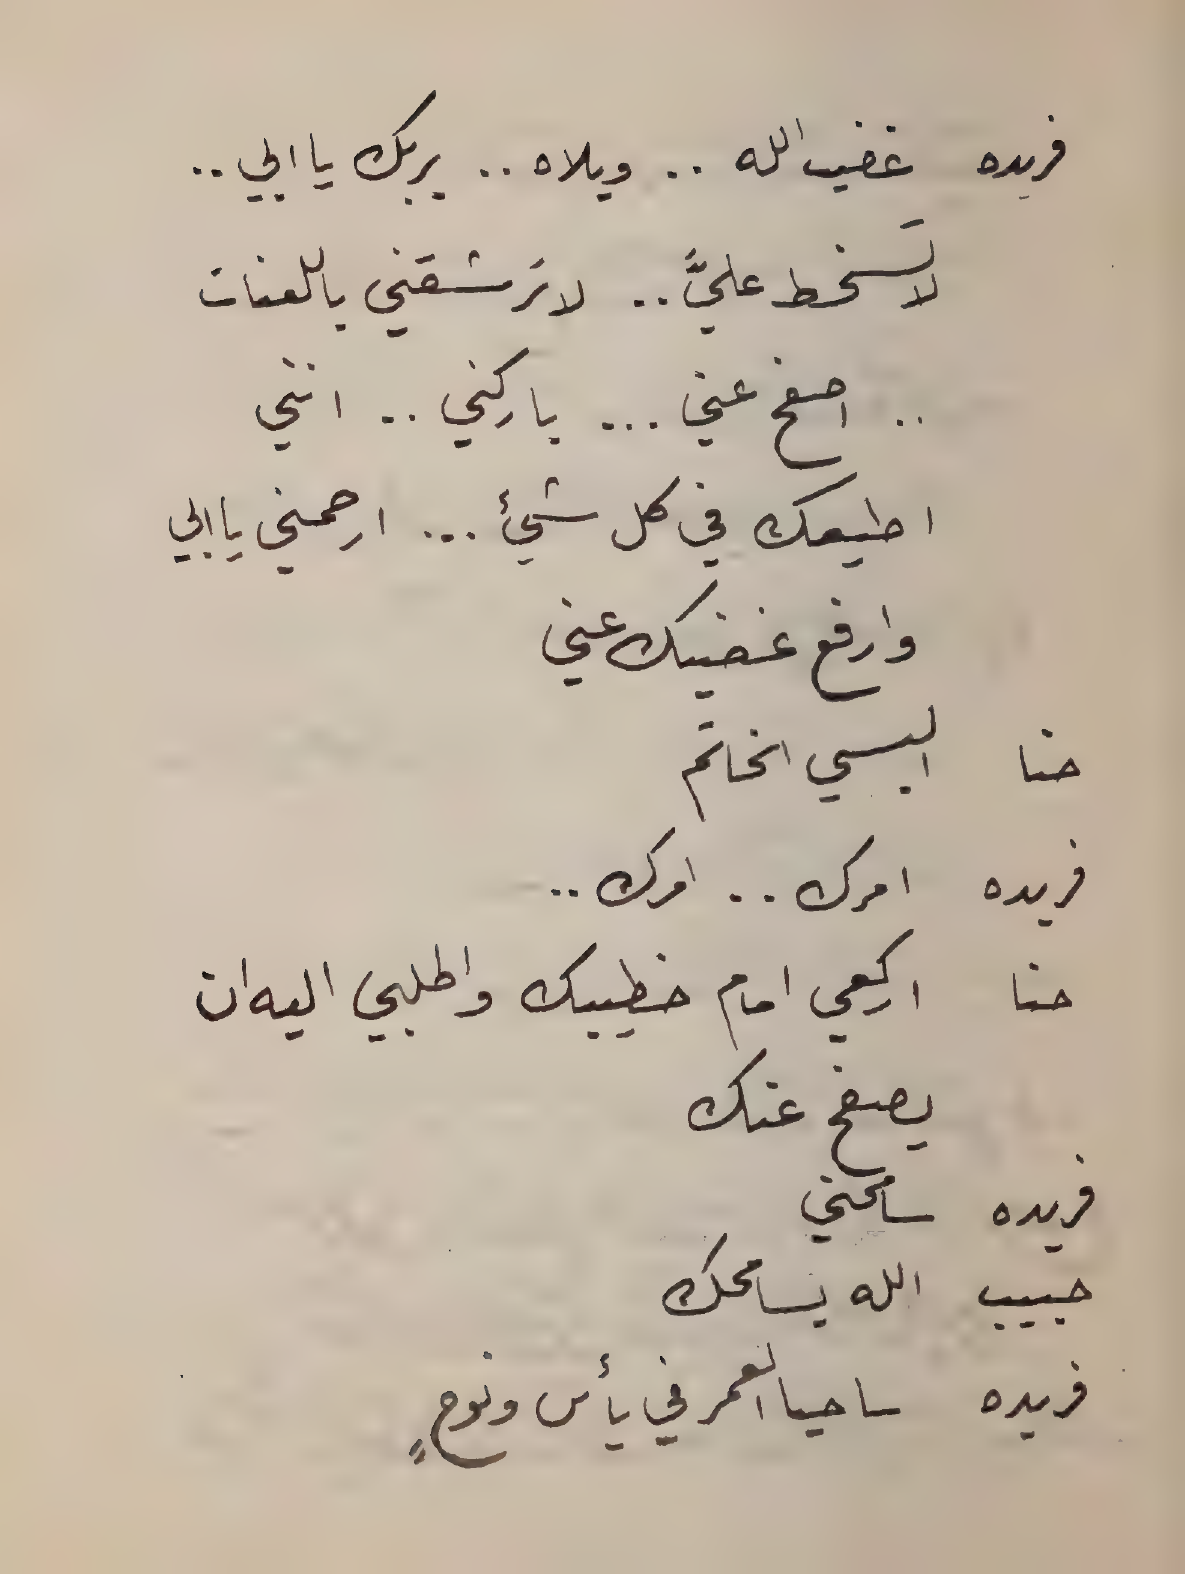 فريده غضب الله .. ويلاه .. بربك يا ابي ..
لا تسخط عليَّ .. لا ترشقني باللعنات
.. اصفح عني ... باركني .. انني
اطيعك في كل شيئ ... ارحمني يا ابي
وارفع غضبك عني
حنا البسي الخاتم
فريده امرك .. امرك ..
حنا اركعي امام خطيبك واطلبي اليه ان
يصفح عنك
فريده سامحني
حبيب الله يسامحك
فريده ساحيا العمر في يأس ونوحٍ